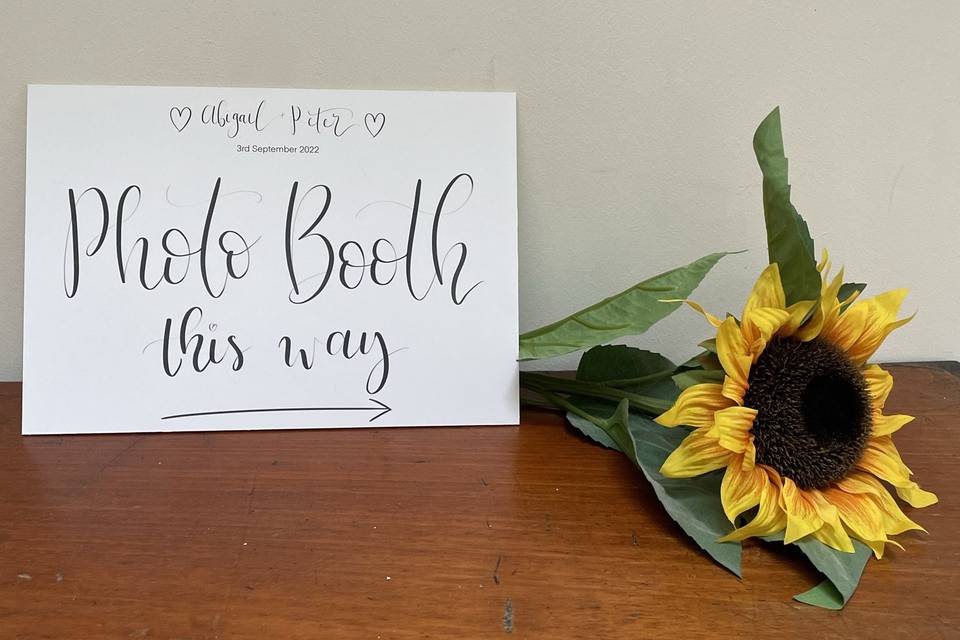 ♡ Abigail + Peter ♡
3rd September 2022
Photo Booth
this way